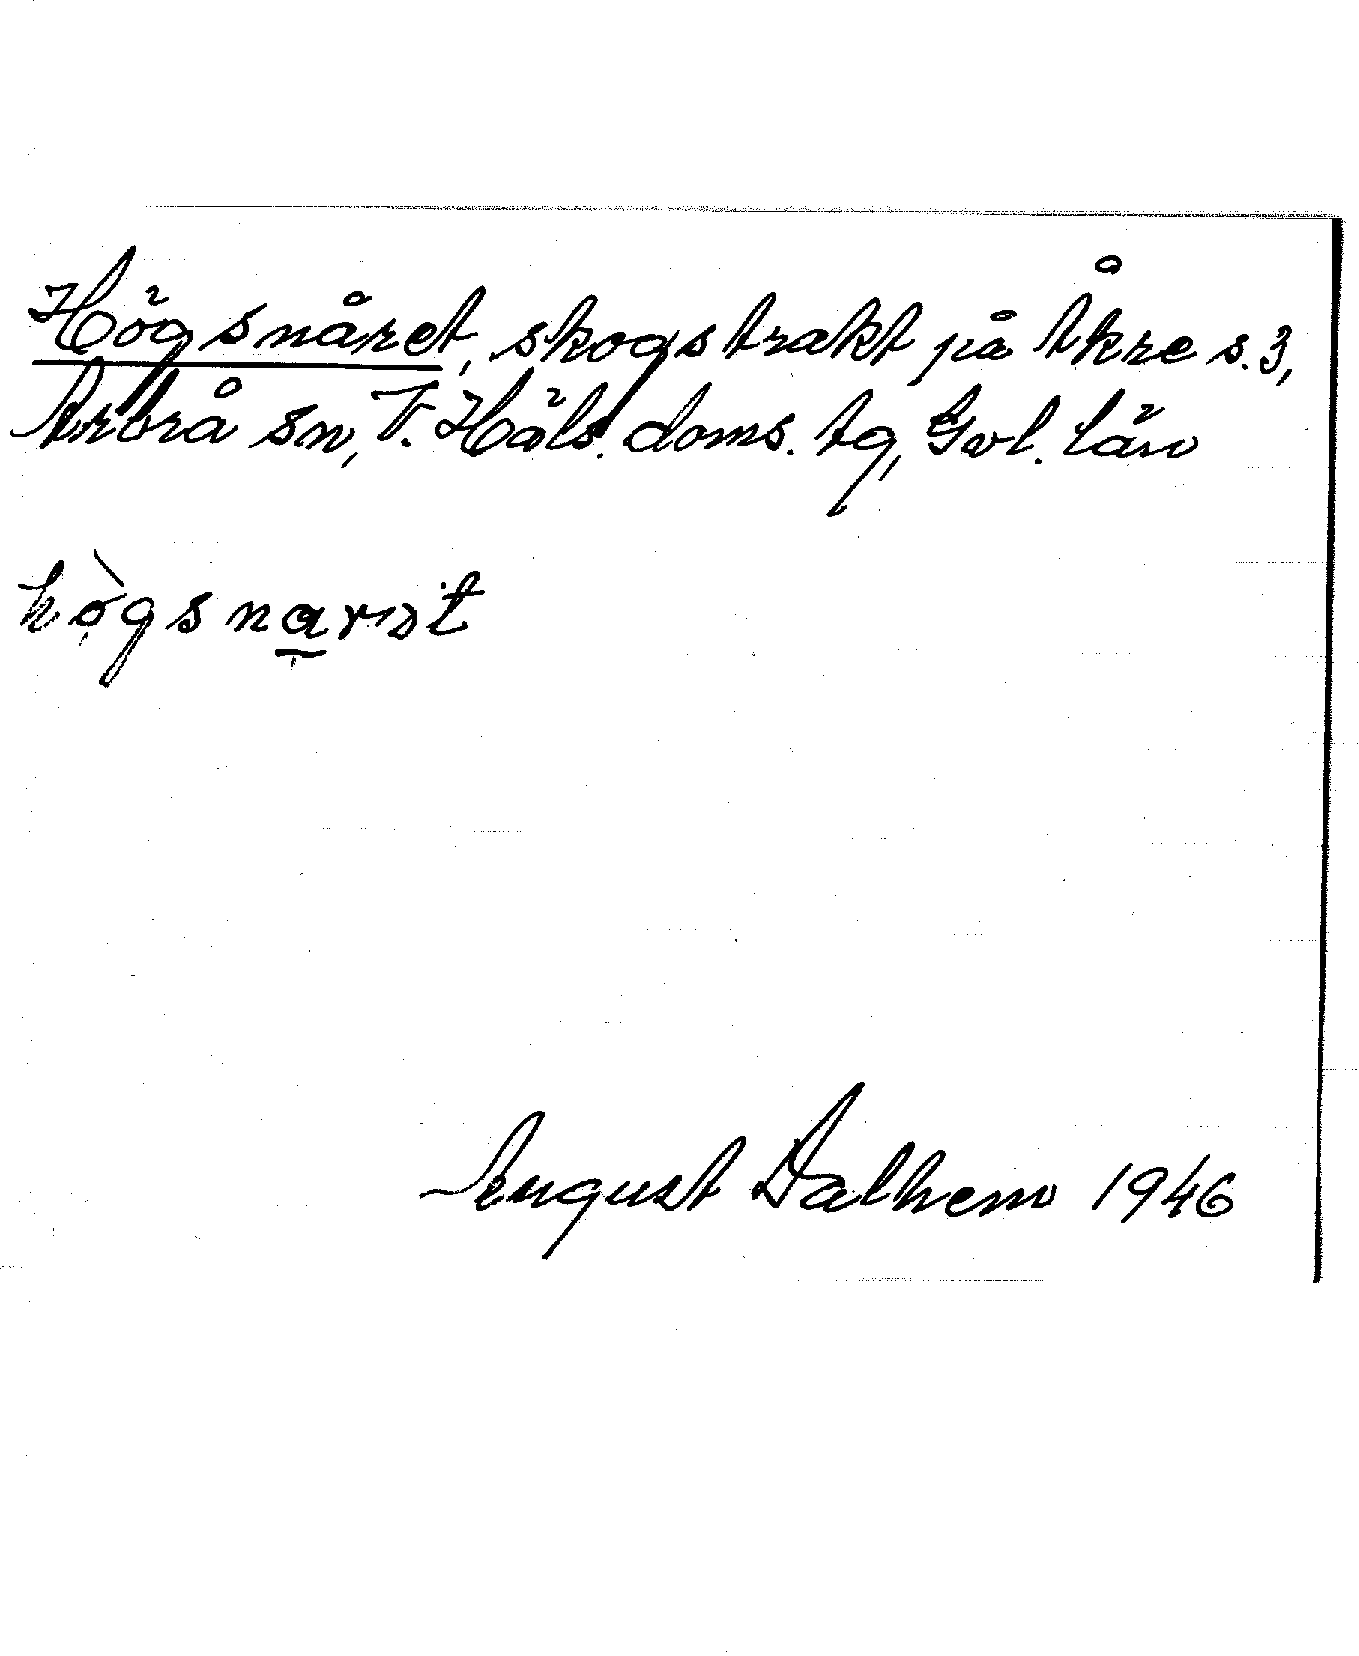 Högsnåret, skogstrakt på Åkre s. 3,
Arbrå sn, V. Häls. doms. tg, Gvl. län
högsnarət
August Dalhem 1946